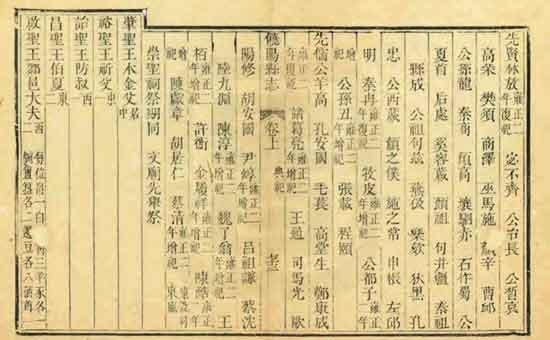 先賢林放雍正二年復祀 宓不齊 公冶長 公晳哀
高柴 樊須 商澤 巫馬施 辛 曹卹
公孫龍 秦商 顏高 壤駟赤 石作蜀 公
夏首 后處 奚容蒧 顏祖 句井疆 秦祖
縣成 公祖句茲 燕伋 樂欬 狄黑 孔
忠 公西蒧 顏之僕 施之常 申棖 左邱
明 秦冉雍正二年復祀 牧皮雍正二年增祀 公都子雍正二年增
祀 公孫丑雍正二年增祀 張載 程頤
先儒公羊高 孔安國 毛萇 高堂生 鄭康成
雍正二年復祀 諸葛亮雍正二年增祀 王通 司馬光 歐
饒陽縣志 卷上 典祀
陽修 胡安國 尹焞雍正二年增祀 呂祖謙 蔡沈
陸九淵 陳淳雍正二年增祀 魏了翁雍正二年增祀 王
柏雍正二年增祀 許衡 金履祥雍正二年增祀 陳澔雍正二年增
祀 陳獻章 胡居仁 蔡清雍正二年增祀 東廡
崇聖祠祭期同 文廟先舉祭
肇聖王木金父中
裕聖王祈父東
詒聖王防叔西
昌聖王伯夏東
啟聖王鄹邑大夫西